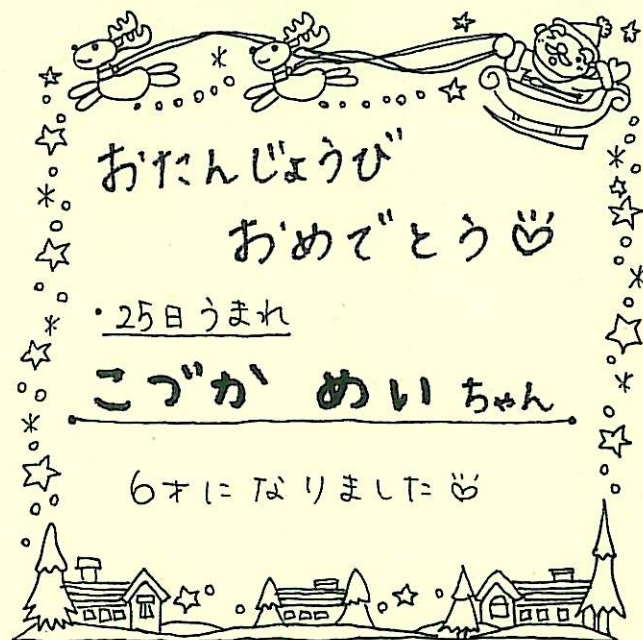 おたんじょうび
おめでとう♡
・25日うまれ
こづか めいちゃん
6才になりました♡